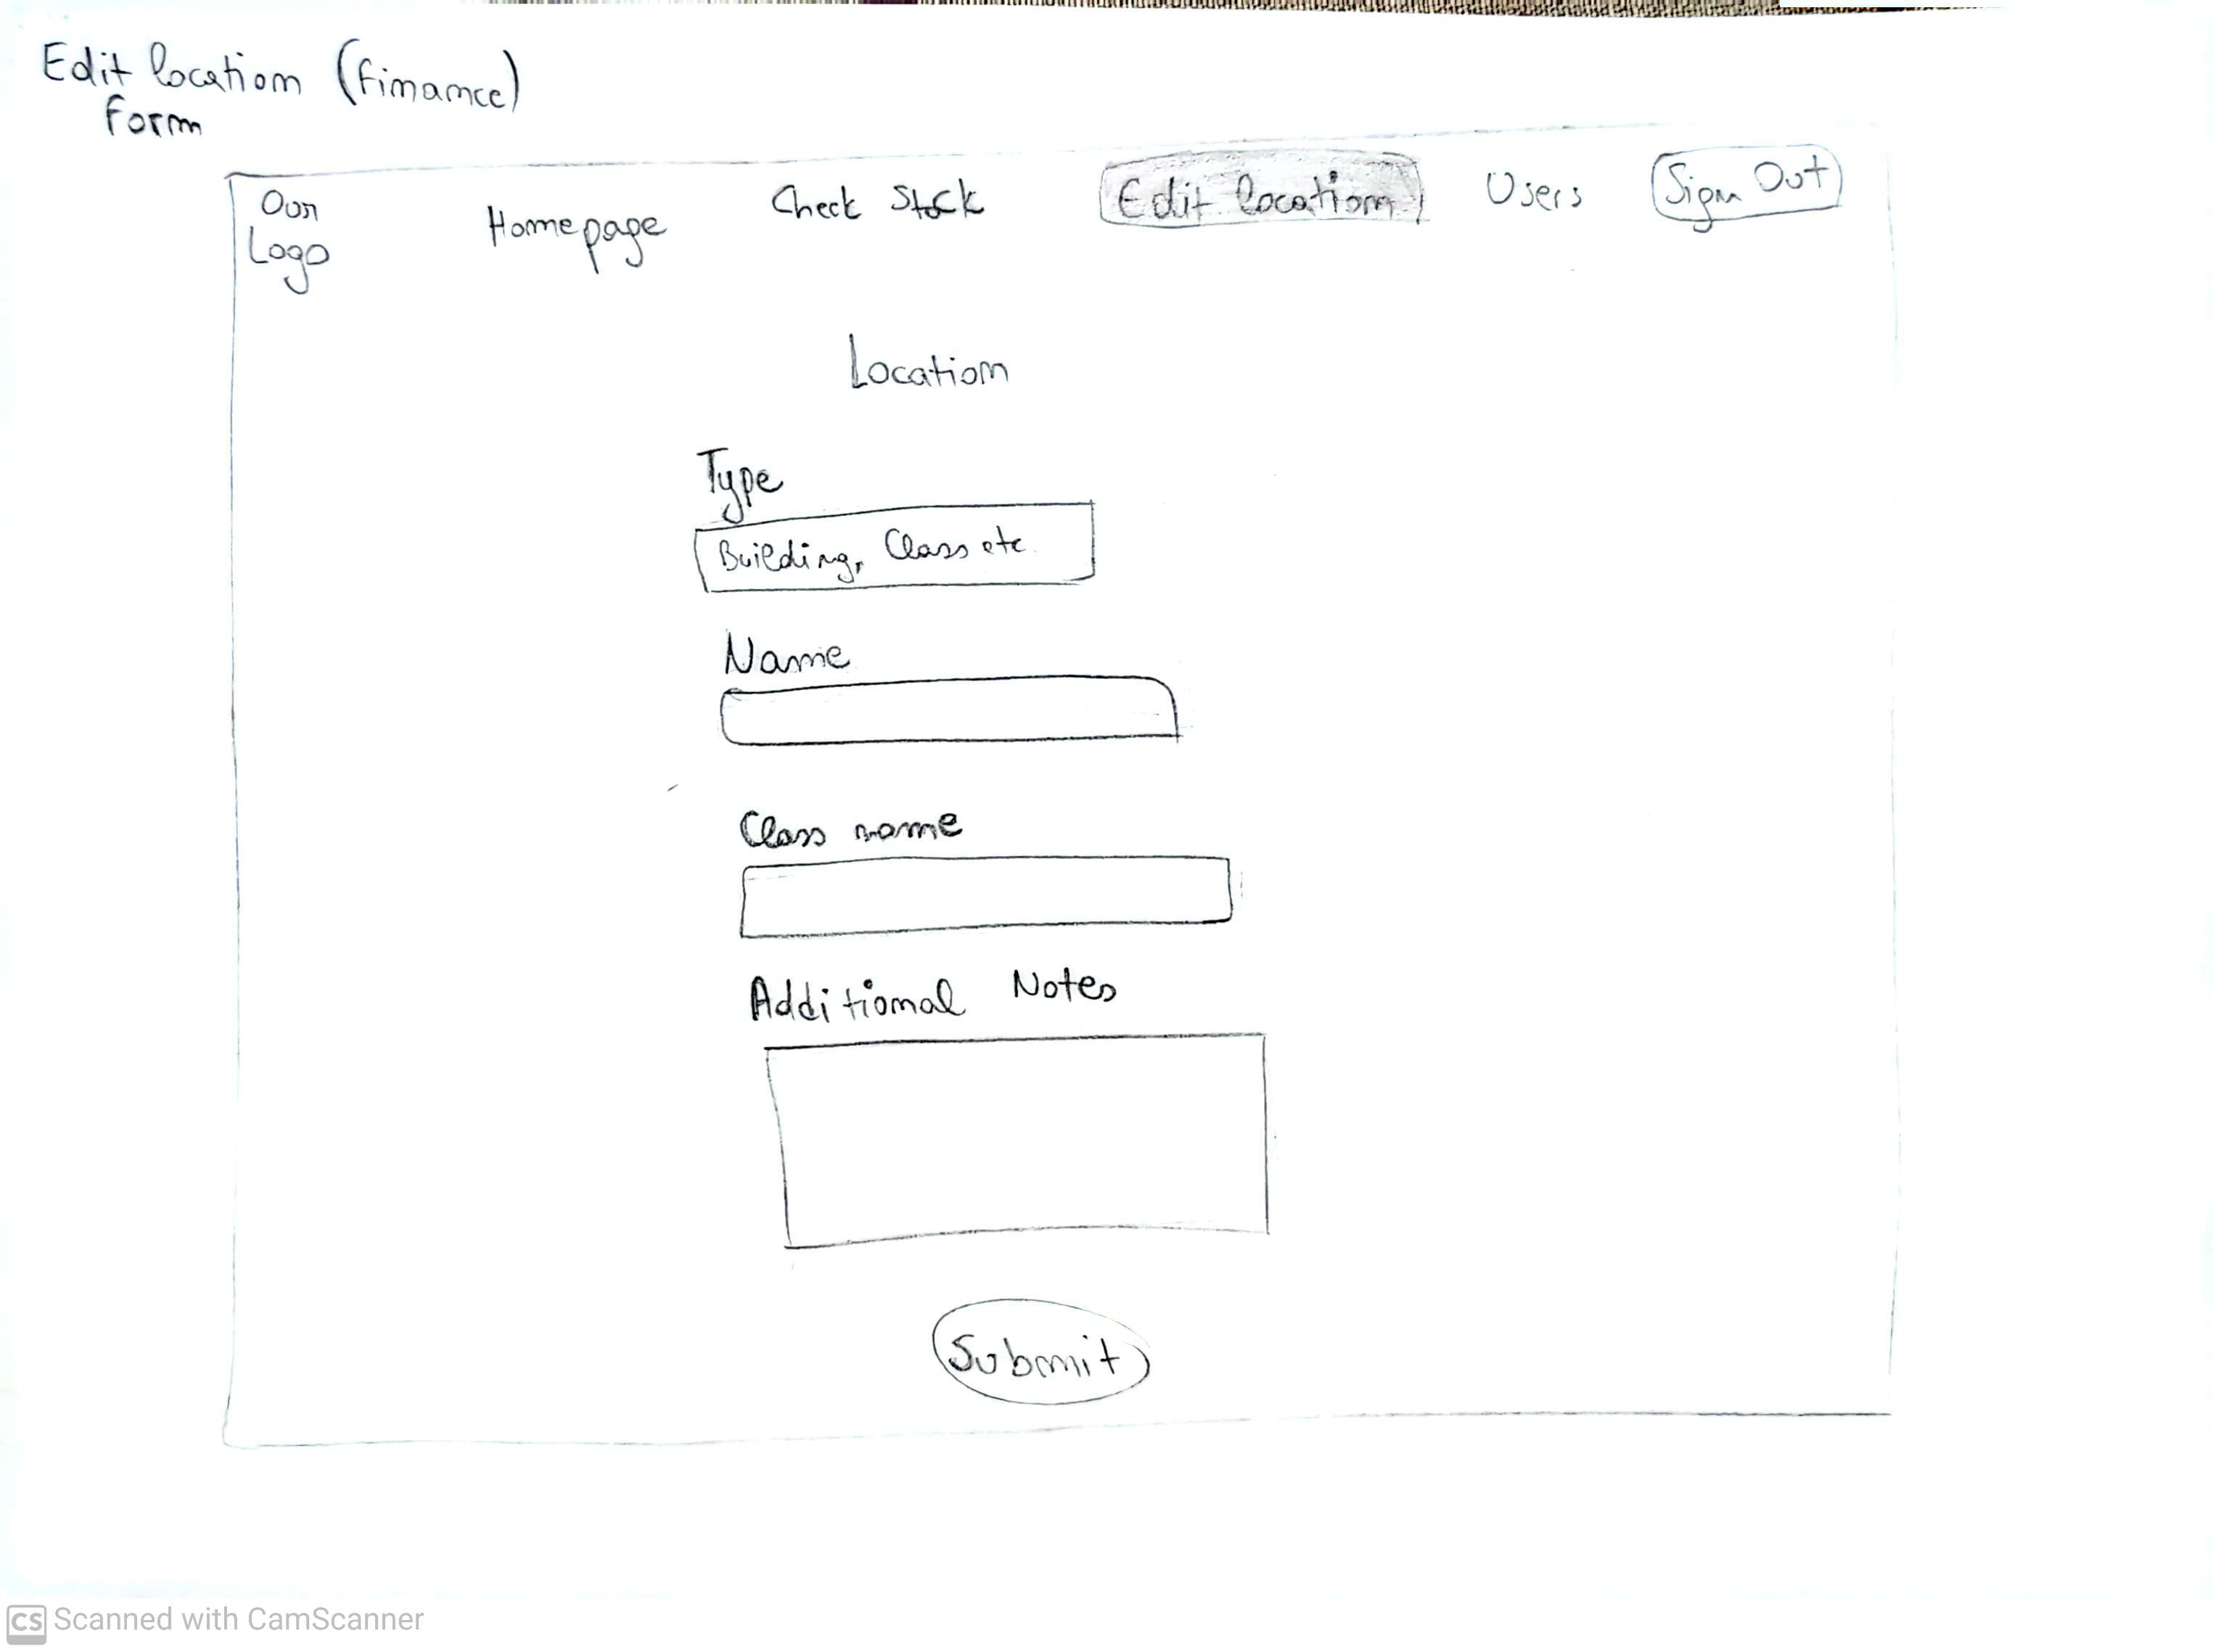 Edit location (finance)
Form
Our
Logo
Homepage
Check Stock
Edit location
Users
Sign Out
Location
Type
Building, Class etc.
Name
Class name
Additional Notes
Submit
CS Scanned with CamScanner